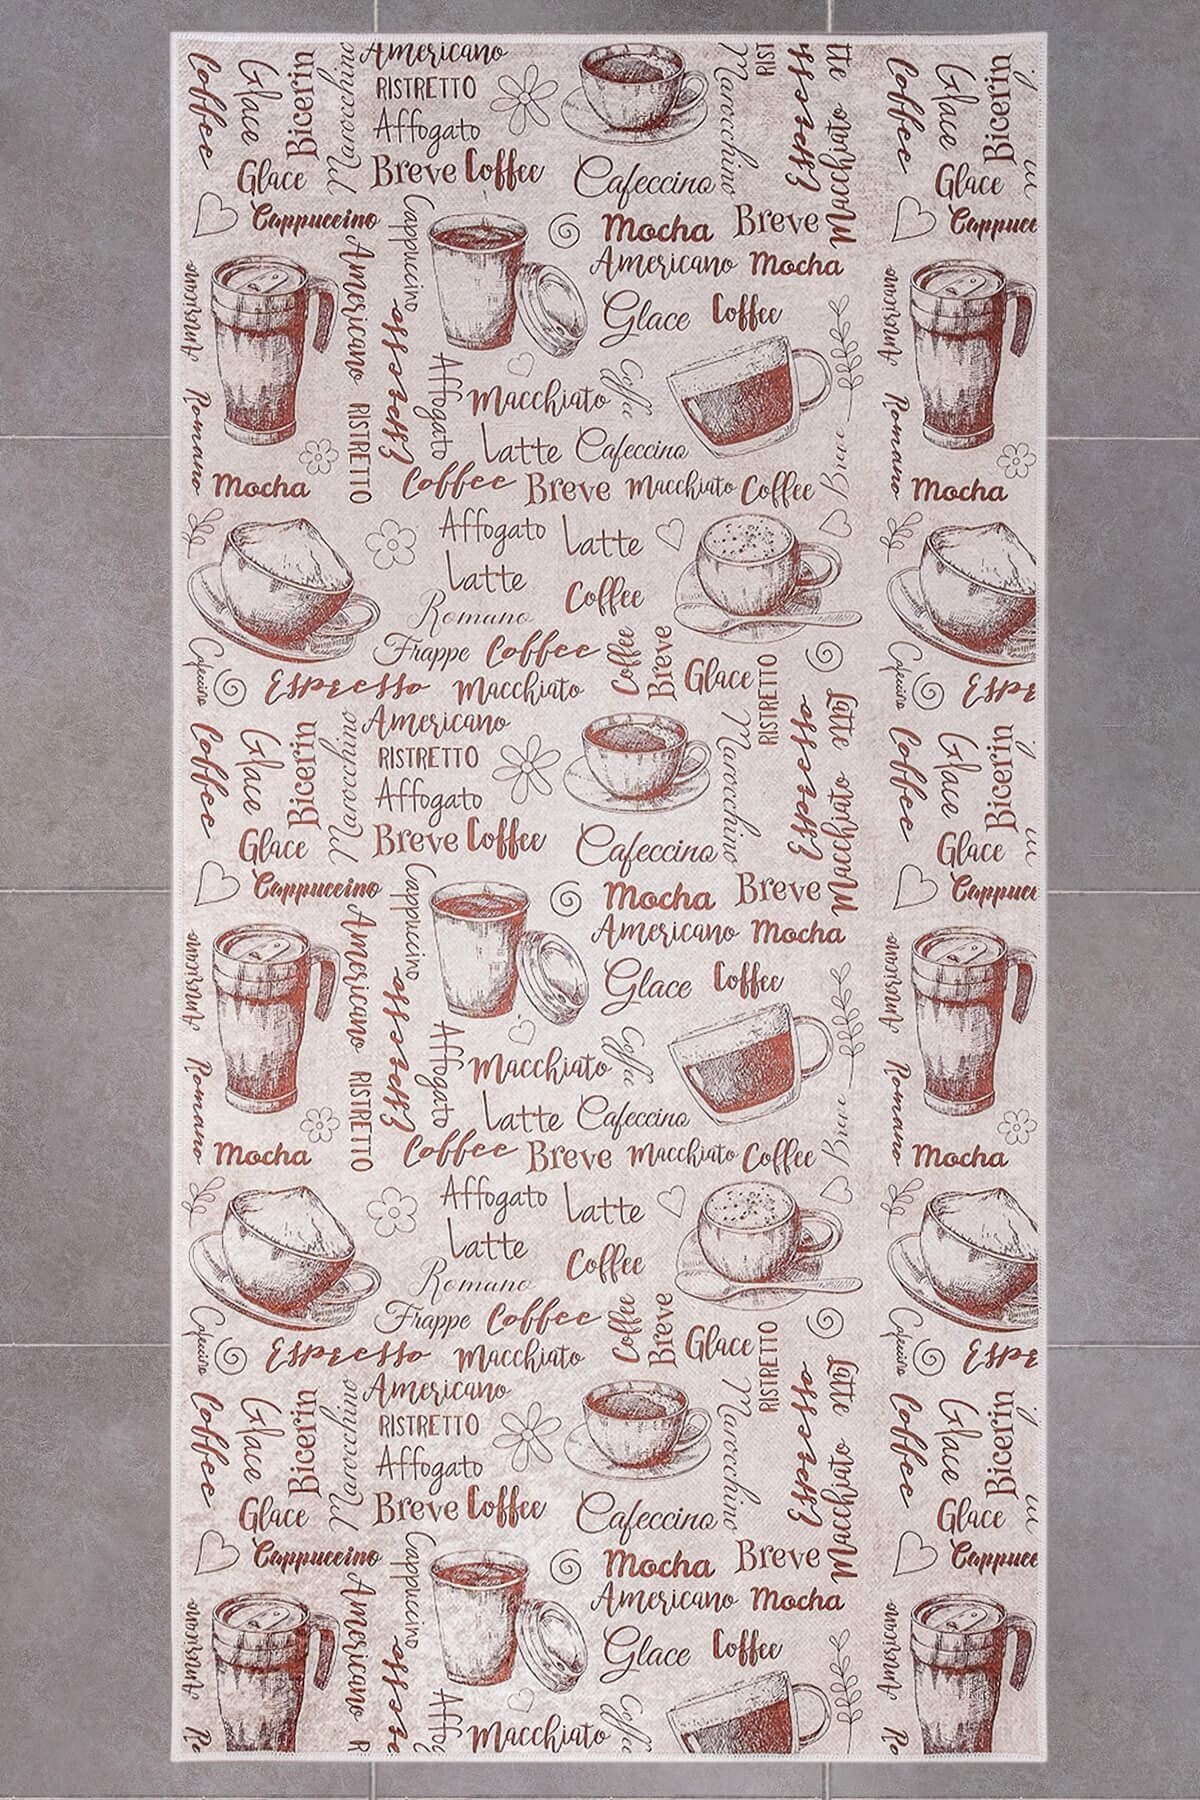 Coffee
Glace
Bicerin
Marocchino
Americano
RISTRETTO
Affogato
Breve Coffee
Glace
Cappuccino
Cafeccino
Marocchino
Espresso
Macchiato
Coffee
Glace
Bicerin
Glace
Cappucc
Mocha Breve
Americano Mocha
Glace Coffee
Cappuccino
Americano
Espresso
Affogato
RISTRETTO
Romano
Mocha
Macchiato
Coffee
Latte Cafeccino
Coffee Breve Macchiato Coffee
Romano
Mocha
Affogato Latte
Latte
Coffee
Romano
Frappe Coffee
Coffee
Breve
Glace
Cafeccino
Espresso Macchiato
Cafeccino
Americano
RISTRETTO
Affogato
Breve Coffee
Coffee
Glace
Bicerin
Marocchino
Glace
Cappuccino
Cafeccino
RISTRETTO
Marocchino
Espresso
Latte
Macchiato
Coffee
Glace
Bicerin
Glace
Cappucc
Mocha Breve
Americano Mocha
Glace Coffee
Cappuccino
Americano
Espresso
Affogato
RISTRETTO
Romano
Mocha
Macchiato
Coffee
Latte Cafeccino
Coffee Breve Macchiato Coffee
Romano
Mocha
Affogato Latte
Latte
Coffee
Romano
Frappe Coffee
Coffee
Breve
Glace
Cafeccino
Espresso Macchiato
Cafeccino
Americano
RISTRETTO
Affogato
Breve Coffee
Coffee
Glace
Bicerin
Marocchino
Glace
Cappuccino
Cafeccino
RISTRETTO
Marocchino
Espresso
Latte
Macchiato
Coffee
Glace
Bicerin
Glace
Cappucc
Mocha Breve
Americano Mocha
Glace Coffee
Cappuccino
Americano
Macchiato